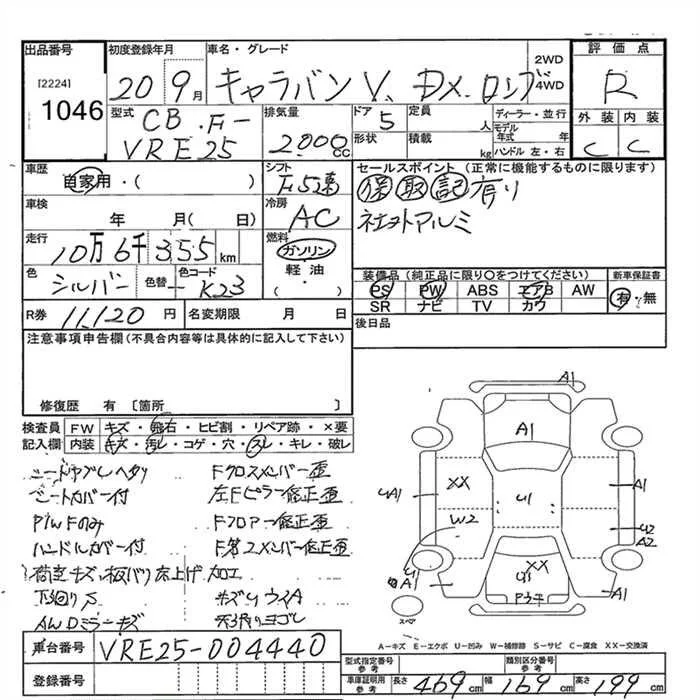 出品番号
[2224]
1046
初度登録年月
20 9月
車名・グレード
キャラバンV. DX. ロング
2WD
4WD
評価点
R
外装 内装
C C
型式
CB.F-
VRE25
排気量
2000cc
ドア 5
形状
定員 人
積載 kg
ディーラー・並行
モデル年式 年
ハンドル 左・右
車歴
自家用・( )
シフト
F5速
セールスポイント (正常に機能するものに限ります)
保 取 記 有り
社外アルミ
車検
年 月( 日)
冷房
AC
走行
10万6千355km
燃料
ガソリン
軽油・
( )
色
シルバー
色替 ー
色コード
K23
装備品(純正品に限り○をつけてください)
新車保証書
PS PW ABS エアB AW
有・無
SR ナビ TV カワ
R券
11,120円
名変期限 月 日
後日品
注意事項申告欄(不具合内容等は具体的に記入して下さい)
修復歴 有〔箇所 〕
検査員 FW キズ・飛石・ヒビ割・リペア跡・×要
記入欄 内装 キズ・汚レ・コゲ・穴・スレ・キレ・破レ
シートヤブレヘタリ Fクロスメンバー歪
シートカバー付 左Fピラー修正歪
P/W Fのみ Fフロアー修正歪
ハンドルカバー付 F第2メンバー修正歪
荷室キズ、板バリ床上げ加工
下回りS キズU ウイA
A/Wミラーキズ 天張りヨゴレ
A1
A1
XX
U1
W2
UA1
A1
U2
A2
A1
XX
U1
Pウキ
A1
スペア
A-キズ E-エクボ U-凹み W-補修跡 S-サビ C-腐食 XX-交換済
車台番号
VRE25-004440
登録番号
型式指定番号参考
類別区分番号参考
車庫証明用参考
長さ 469cm 幅 169cm 高さ 199cm